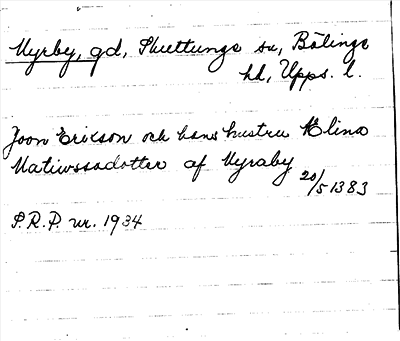 Nyrby, gd, Skuttunge sn, Bälinge
hd, Upps. l.
Joon Ericson och hans hustru Elina
Matiwssadotter af Nyraby
20/5 1383
S.R.P. nr. 1934